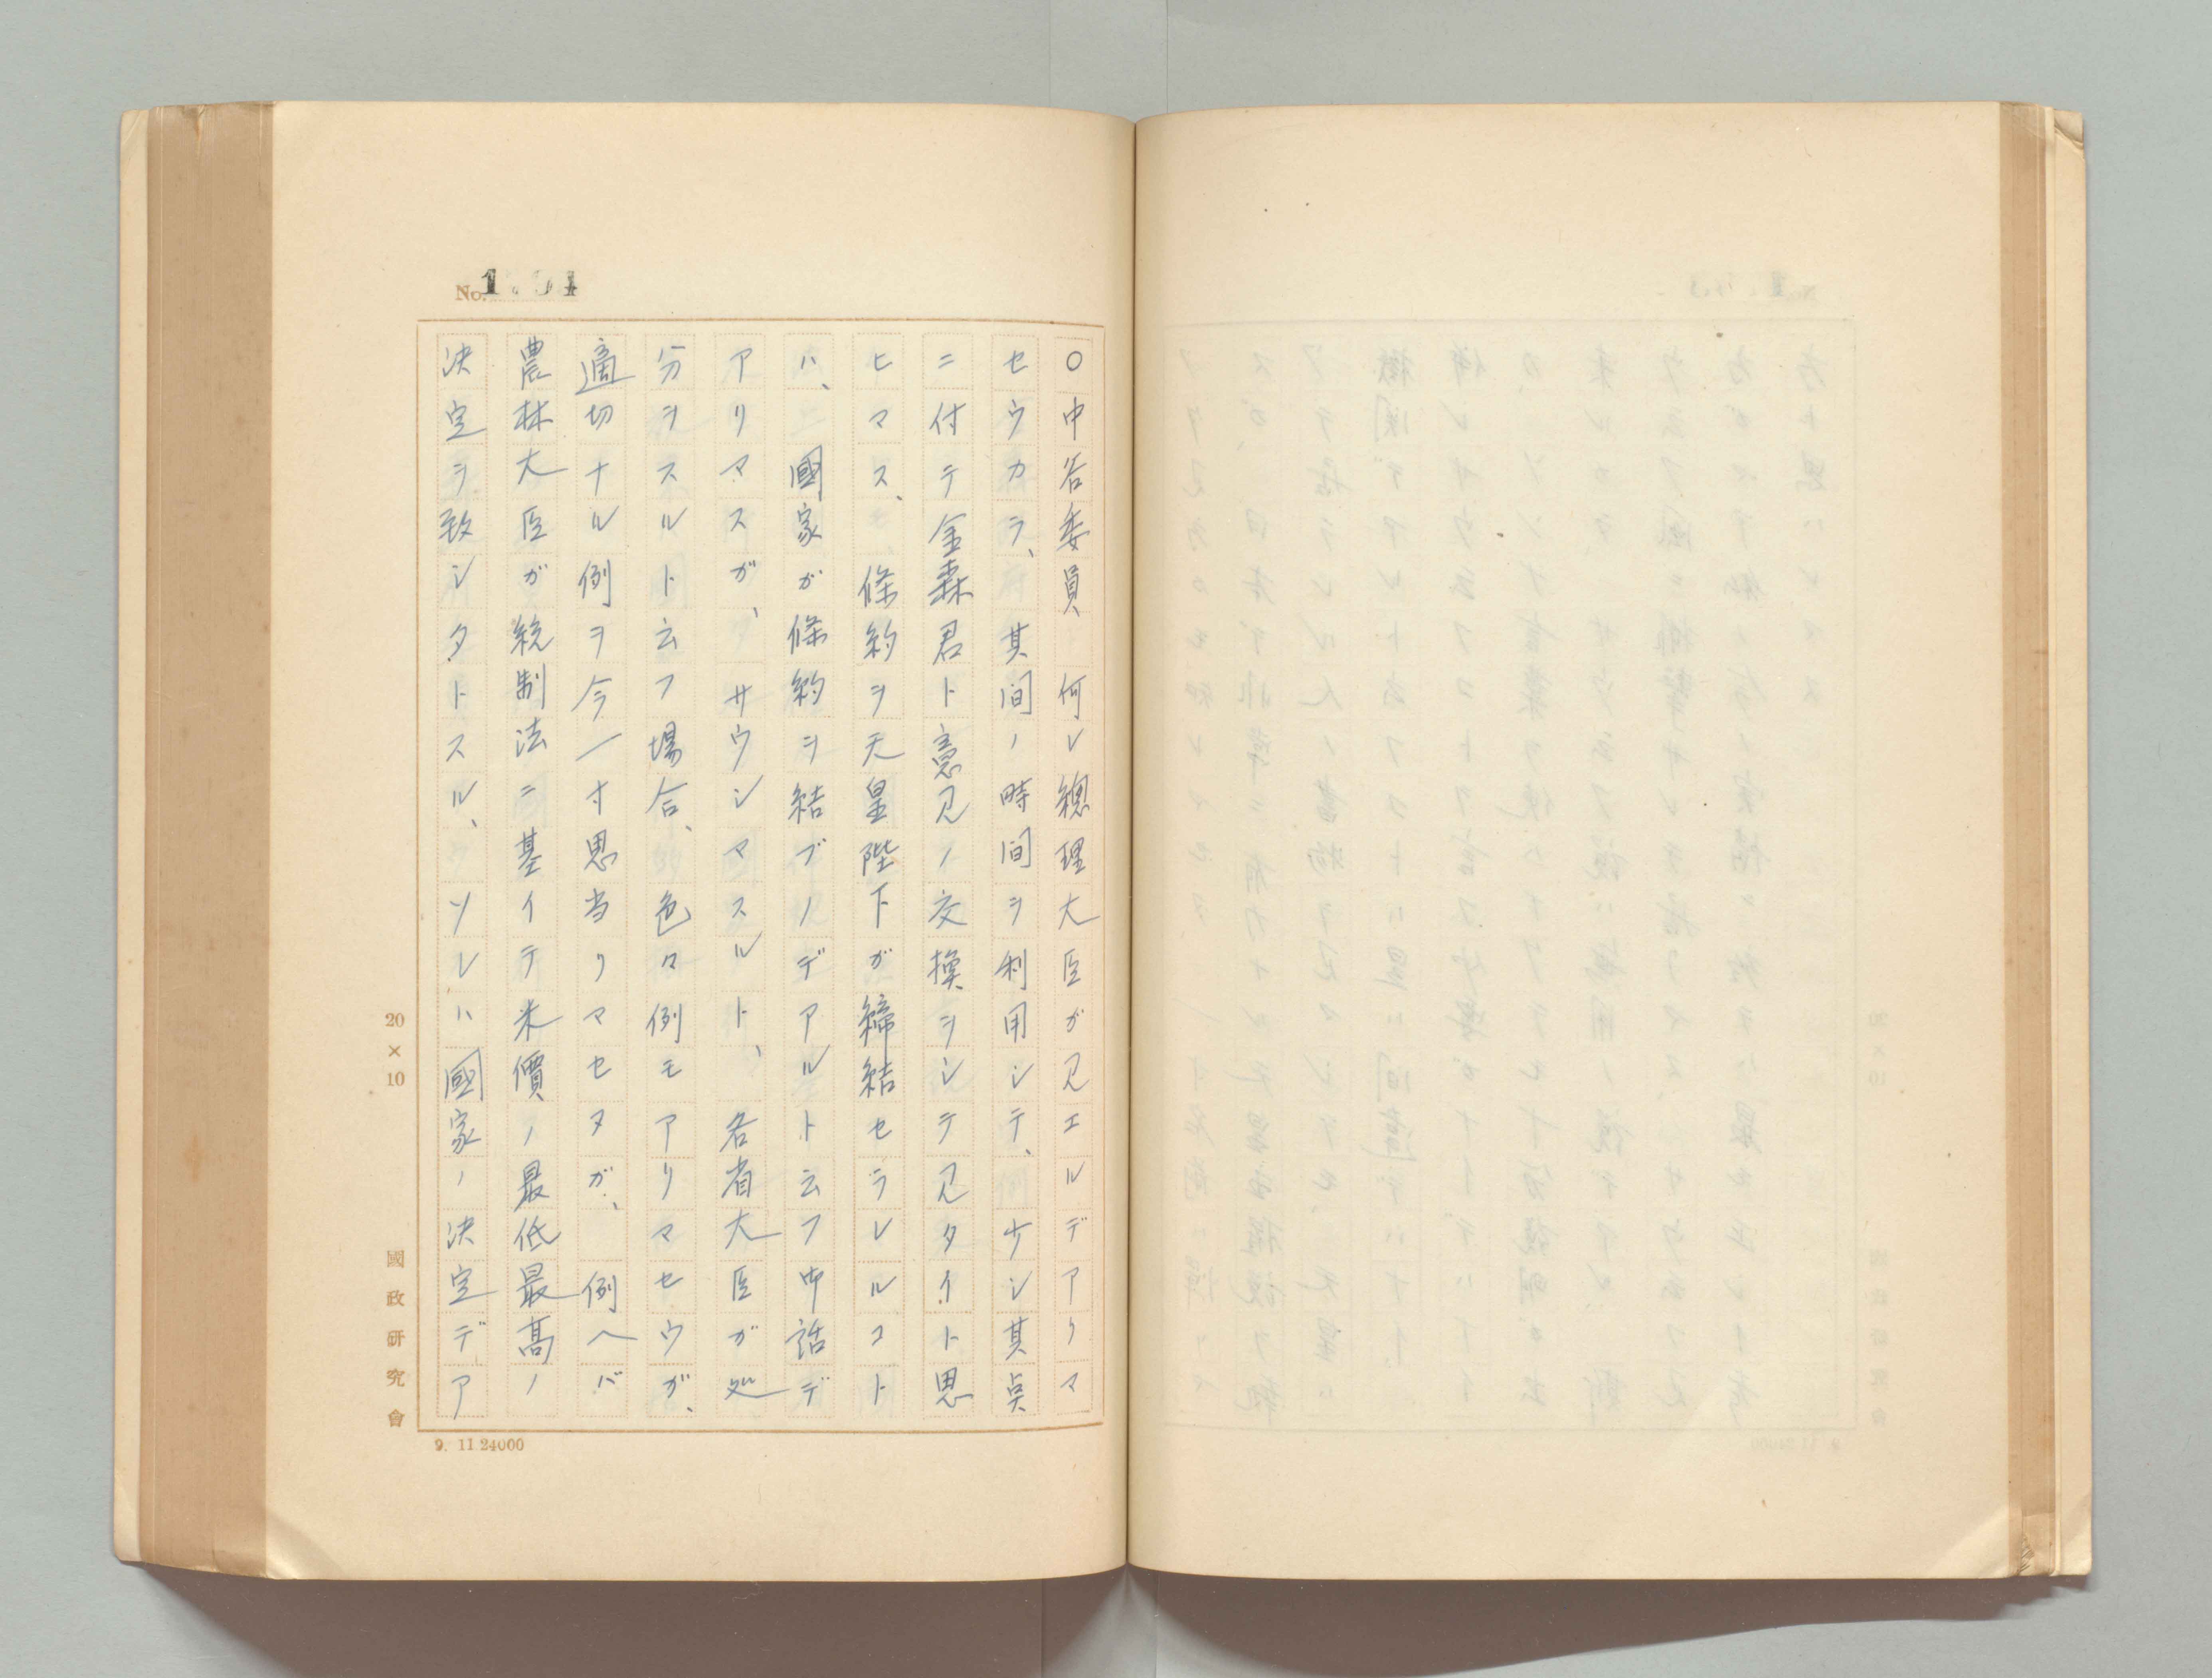 ○中谷委員　何レ總理大臣ガ見エルデアリマ
セウカラ、其間ノ時間ヲ利用シテ、少シ其点
ニ付テ金森君ト意見ノ交換ヲシテ見タイト思
ヒマス、條約ヲ天皇陛下ガ締結セラレルコト
ハ、國家ガ條約ヲ結ブノデアルト云フ御話デ
アリマスガ、サウシマスルト、各省大臣ガ処
分ヲスルト云フ場合、色々例モアリマセウガ、
適切ナル例ヲ今一寸思当リマセヌガ、例ヘバ
農林大臣ガ統制法ニ基イテ米價ノ最低最高ノ
決定ヲ致シタトスル、ソレハ國家ノ決定デア
20×10
國政研究會
9. 11 24000